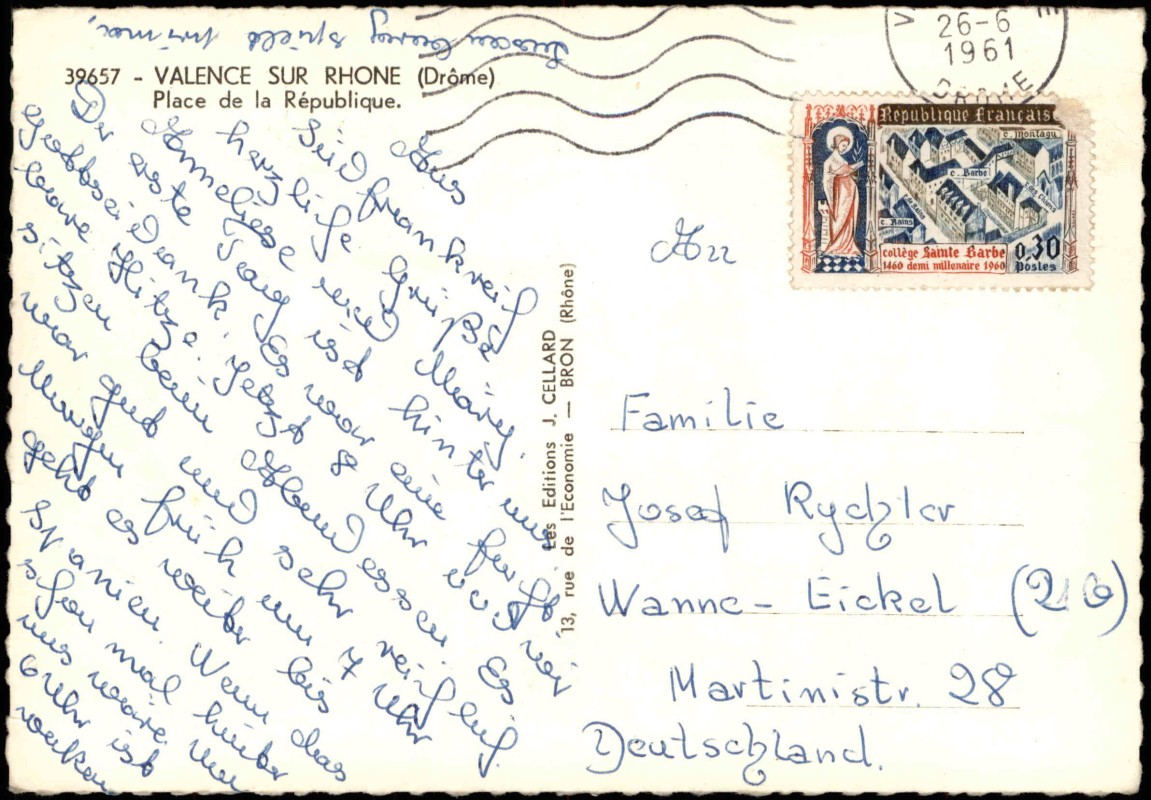 39657 - VALENCE SUR RHONE (Drôme)
Place de la République.
Aus
Südfrankreich
herzliche Grüße
Anneliese und Mary.
Der erste Tag ist hinter uns
Gottseidank. Es war eine furcht
bare Hitze. Jetzt 8 Uhr u. wir
sitzen beim Abendessen Es
war gut und sehr reichlich.
Morgen früh um 7 Uhr
geht es weiter bis
Spanien. Wenn das
schon mal hinter
uns wäre. Um
6 Uhr ist
wecken
spielt prima,
Les Editions J. CELLARD
13, rue de l'Economie — BRON (Rhône)
26-6
1961
DROME
République Française
c. Montagu
c. Barbe
c. Rains
collège Sainte Barbe
1460 demi millenaire 1960
0,30
Postes
An
Familie
Josef Rychter
Wanne-Eickel
Martinistr. 28
Deutschland.